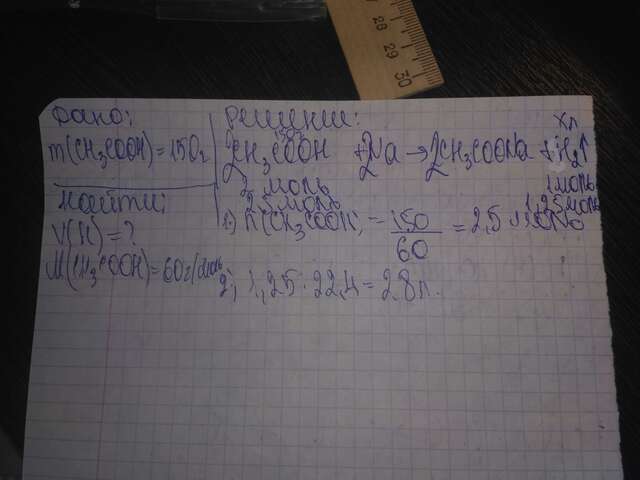 28 29 30
Дано:
m(CH₃COOH)=150г
Найти:
V(H)=?
M(CH₃COOH)=60г/моль
Решение:
150г
x л
2CH₃COOH +2Na→2CH₃COONa +H₂↑
2 моль
1 моль
2,5 моль
1,25 моль
1) n(CH₃COOH)=150/60=2,5 моль
2) 1,25·22,4=28л.